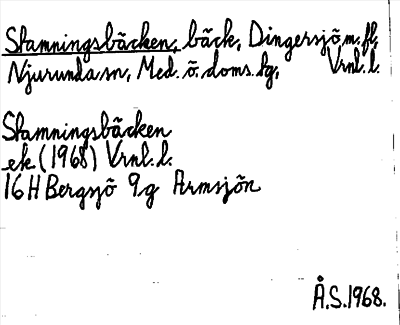 Stamningsbäcken, bäck, Dingersjö m. fl.
Njurunda sn, Med. ö. doms. tg, Vrnl. l.
Stamningsbäcken
ek (1968) Vrnl. l.
16 H Bergsjö 9g Armsjön
Å.S. 1968.